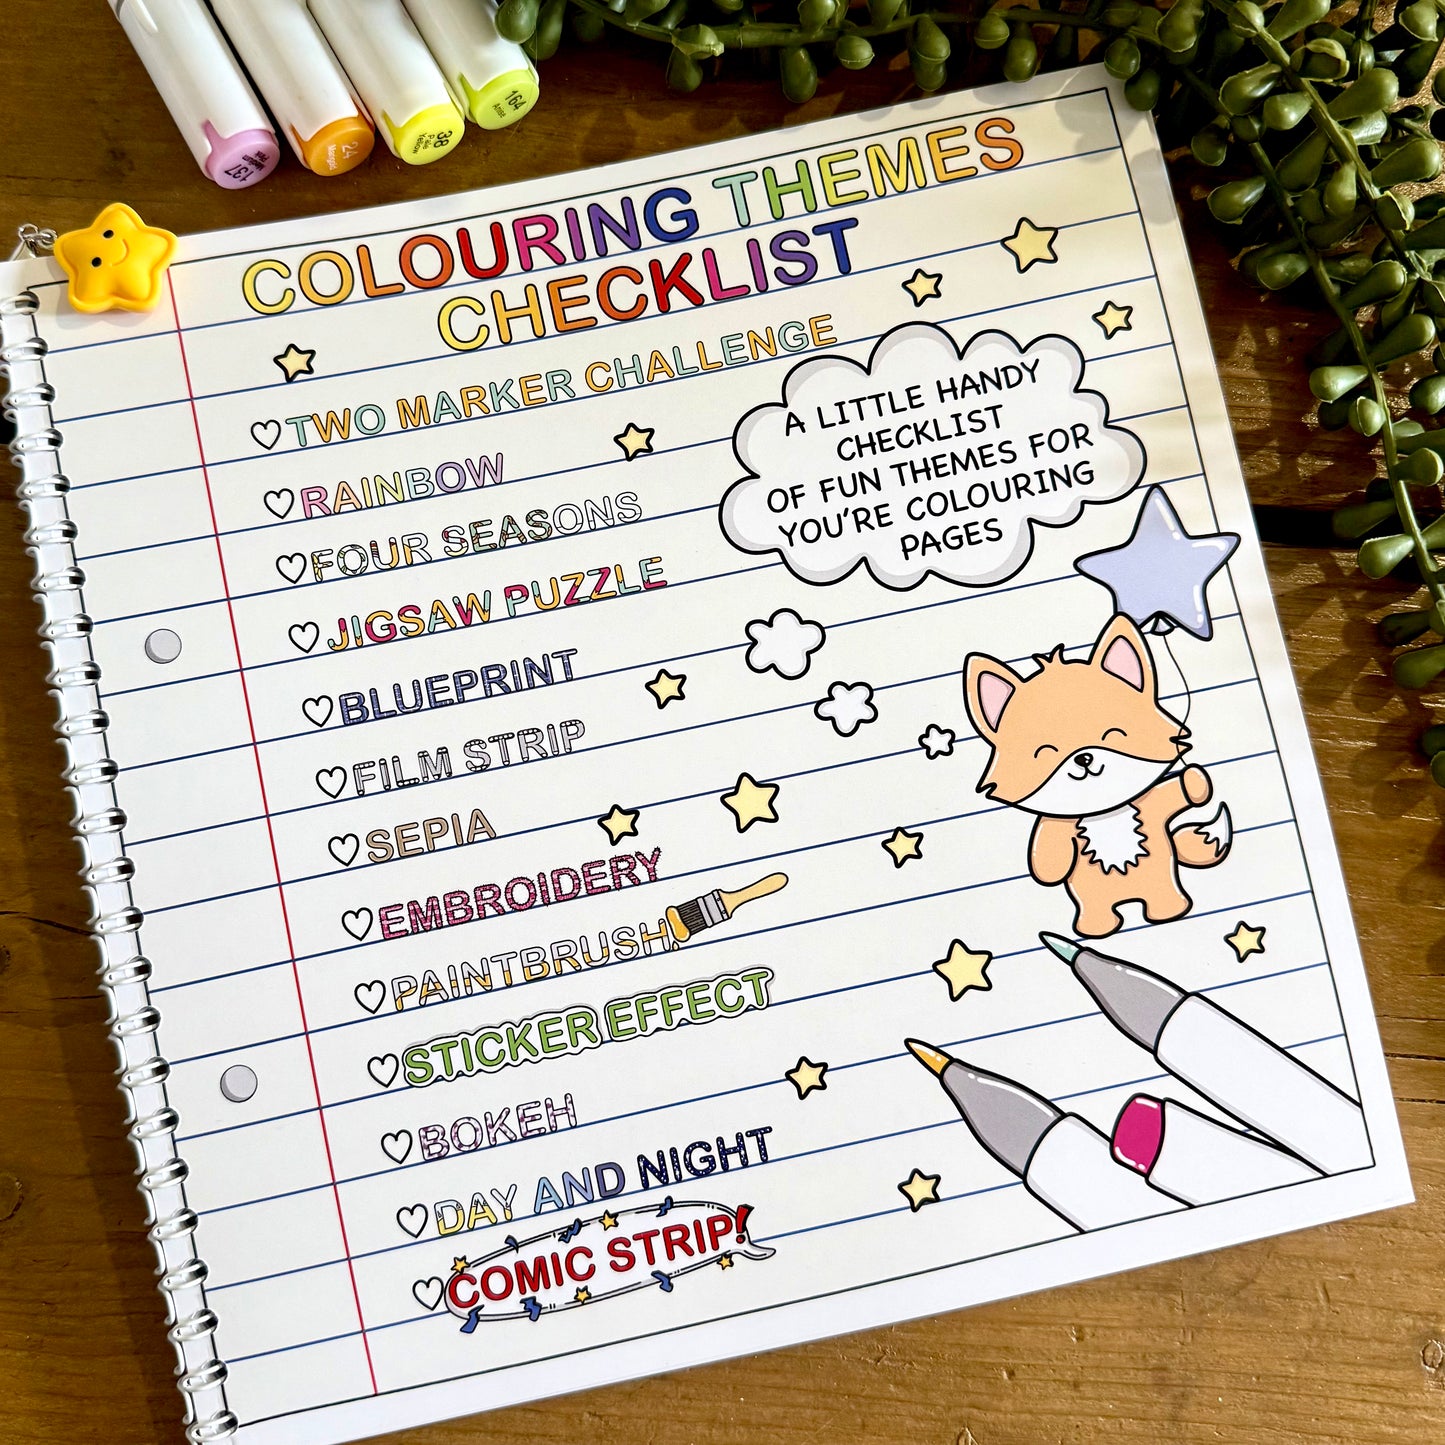 137
Medium
Pink
24
Marigold
38
Pale
Yellow
164
Anise
COLOURING THEMES
CHECKLIST
TWO MARKER CHALLENGE
RAINBOW
FOUR SEASONS
JIGSAW PUZZLE
BLUEPRINT
FILM STRIP
SEPIA
EMBROIDERY
PAINTBRUSH
STICKER EFFECT
BOKEH
DAY AND NIGHT
COMIC STRIP!
A LITTLE HANDY
CHECKLIST
OF FUN THEMES FOR
YOU'RE COLOURING
PAGES